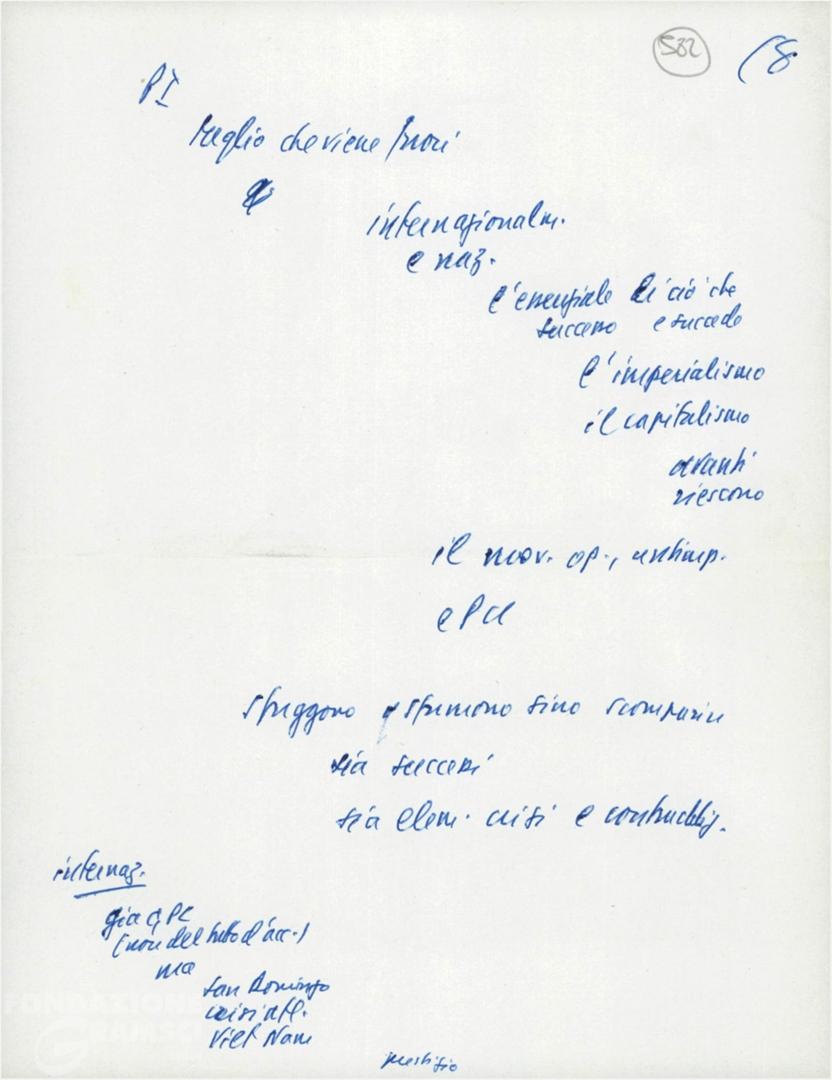 532
(8
PI
Meglio che viene fuori
internazionalm.
e naz.
l'essenziale di ciò che
successo e succede
l'imperialismo
il capitalismo
avanti
riescono
il mov. op., antimp.
e PCI
sfuggono sfumano sino scomparire
sia successi
sia elem. crisi e contraddiz.
internaz.
già CPC
(non del tutto d'acc.)
ma
San Domingo
crisi atl.
Viet Nam
prestigio
FONDAZIONE
GRAMSCI